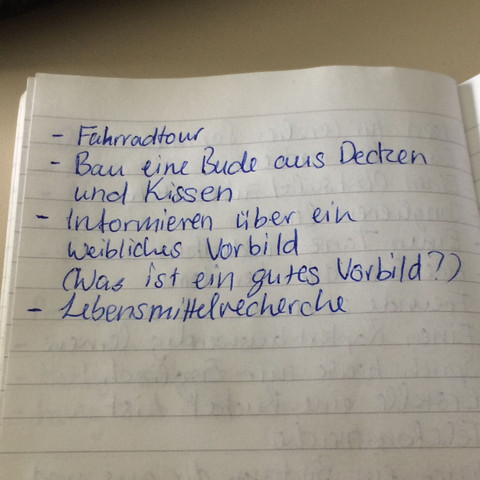 - Fahrradtour
- Bau eine Bude aus Decken
und Kissen
- Informieren über ein
weibliches Vorbild
(Was ist ein gutes Vorbild?)
- Lebensmittelrecherche